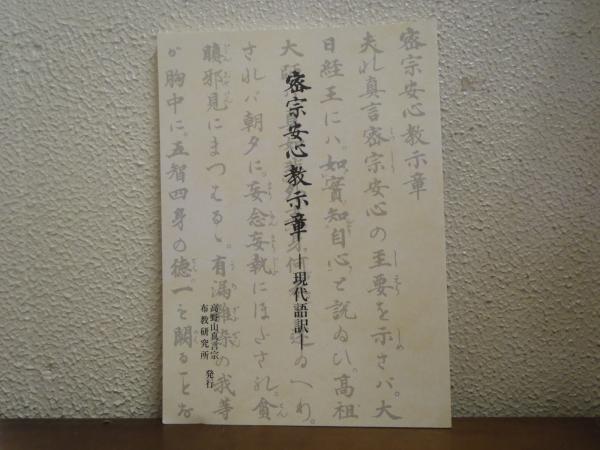 密宗安心教示章
―現代語訳―
高野山真言宗
布教研究所 発行
密宗安心教示章
夫れ真言密宗安心の主要を示さバ。大
日経王にハ。如實知自心と説ゐひ。高祖
大師
されバ朝夕に。妄念妄執にほだされ。貪
瞋邪見にまつはる。有漏雑染の我等
が胸中に。五智四身の徳一も闕ることな